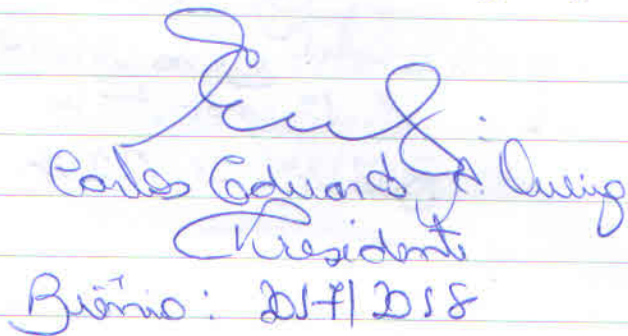 Carlos Eduardo A. Queiroz
Presidente
Biênio: 2017/2018